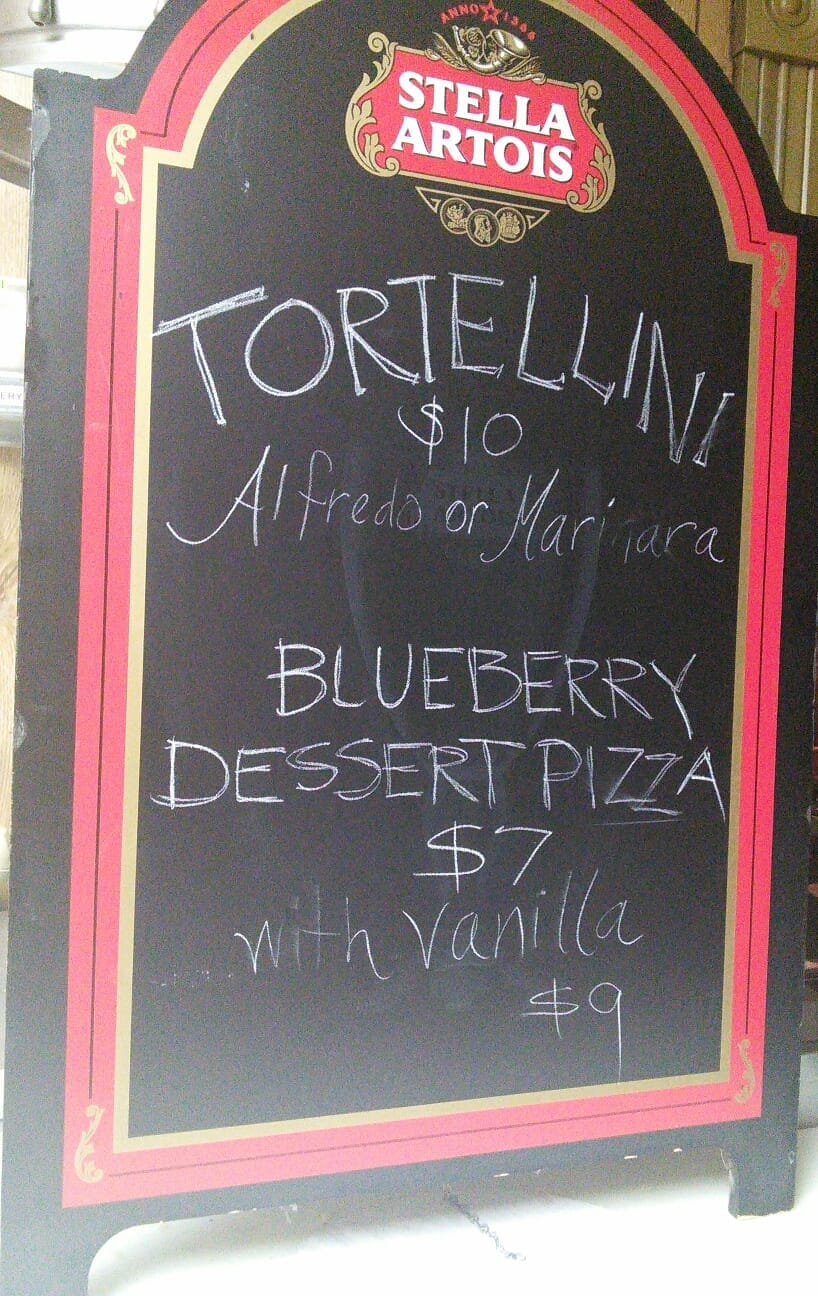 ANNO 1366
STELLA
ARTOIS
TORTELLINI
$10
Alfredo or Marinara
BLUEBERRY
DESSERT PIZZA
$7
with vanilla
$9
ERY